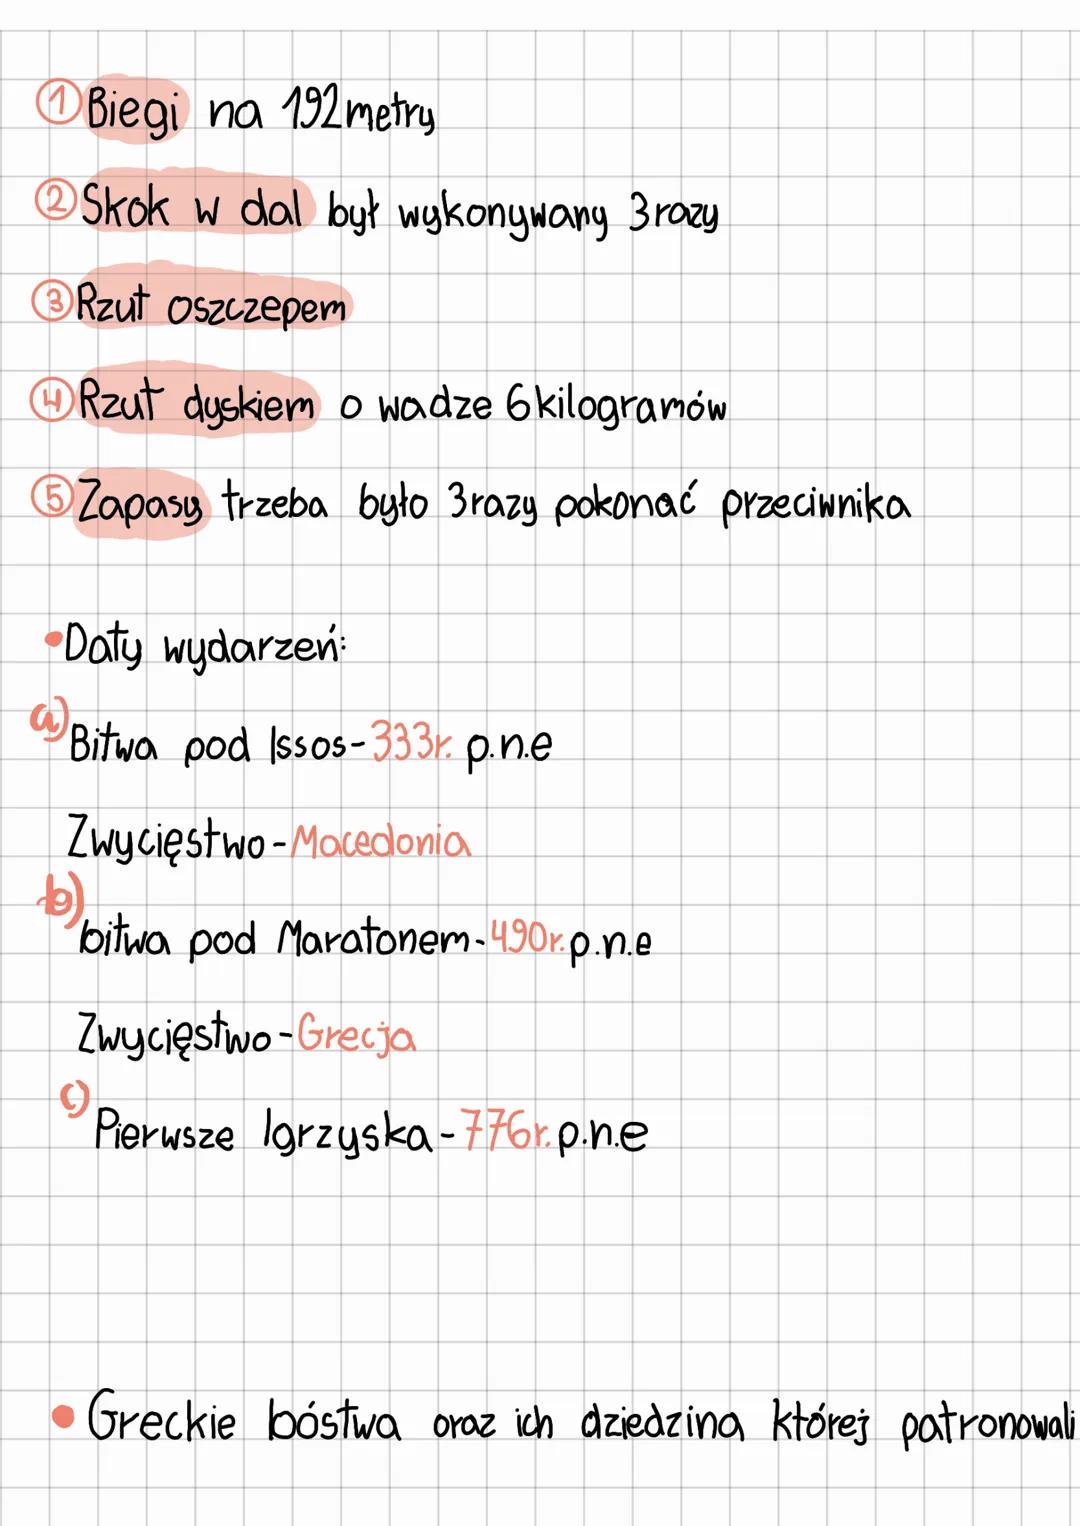 ① Biegi na 192metry
② Skok w dal był wykonywany 3razy
③ Rzut oszczepem
④ Rzut dyskiem o wadze 6kilogramów
⑤ Zapasy trzeba było 3razy pokonać przeciwnika
•Daty wydarzeń:
a) Bitwa pod Issos-333r. p.n.e
Zwycięstwo-Macedonia
b) bitwa pod Maratonem-490r.p.n.e
Zwycięstwo-Grecja
c) Pierwsze Igrzyska-776r.p.n.e
• Greckie bóstwa oraz ich dziedzina której patronowali